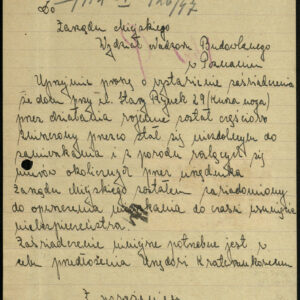 Do
Zarządu Miejskiego
Wydział Nadzoru Budowlanego
w Poznaniu
Uprzejmie proszę o wystawienie zaświadczenia
że dom przy ul. Stary Rynek 29 (Kurza noga)
przez działania wojenne został częściowo
zniszczony przez co stał się niezdolnym do
zamieszkania i z powodu walących się
murów okolicznych przez urzędnika
Zarządu Miejskiego zostałem zawiadomiony
do opuszczenia mieszkania do czasu usunięcia
niebezpieczeństwa.
Zaświadczenie powyższe potrzebne jest w
celu przedłożenia Urzędowi Kwaterunkowemu
Z